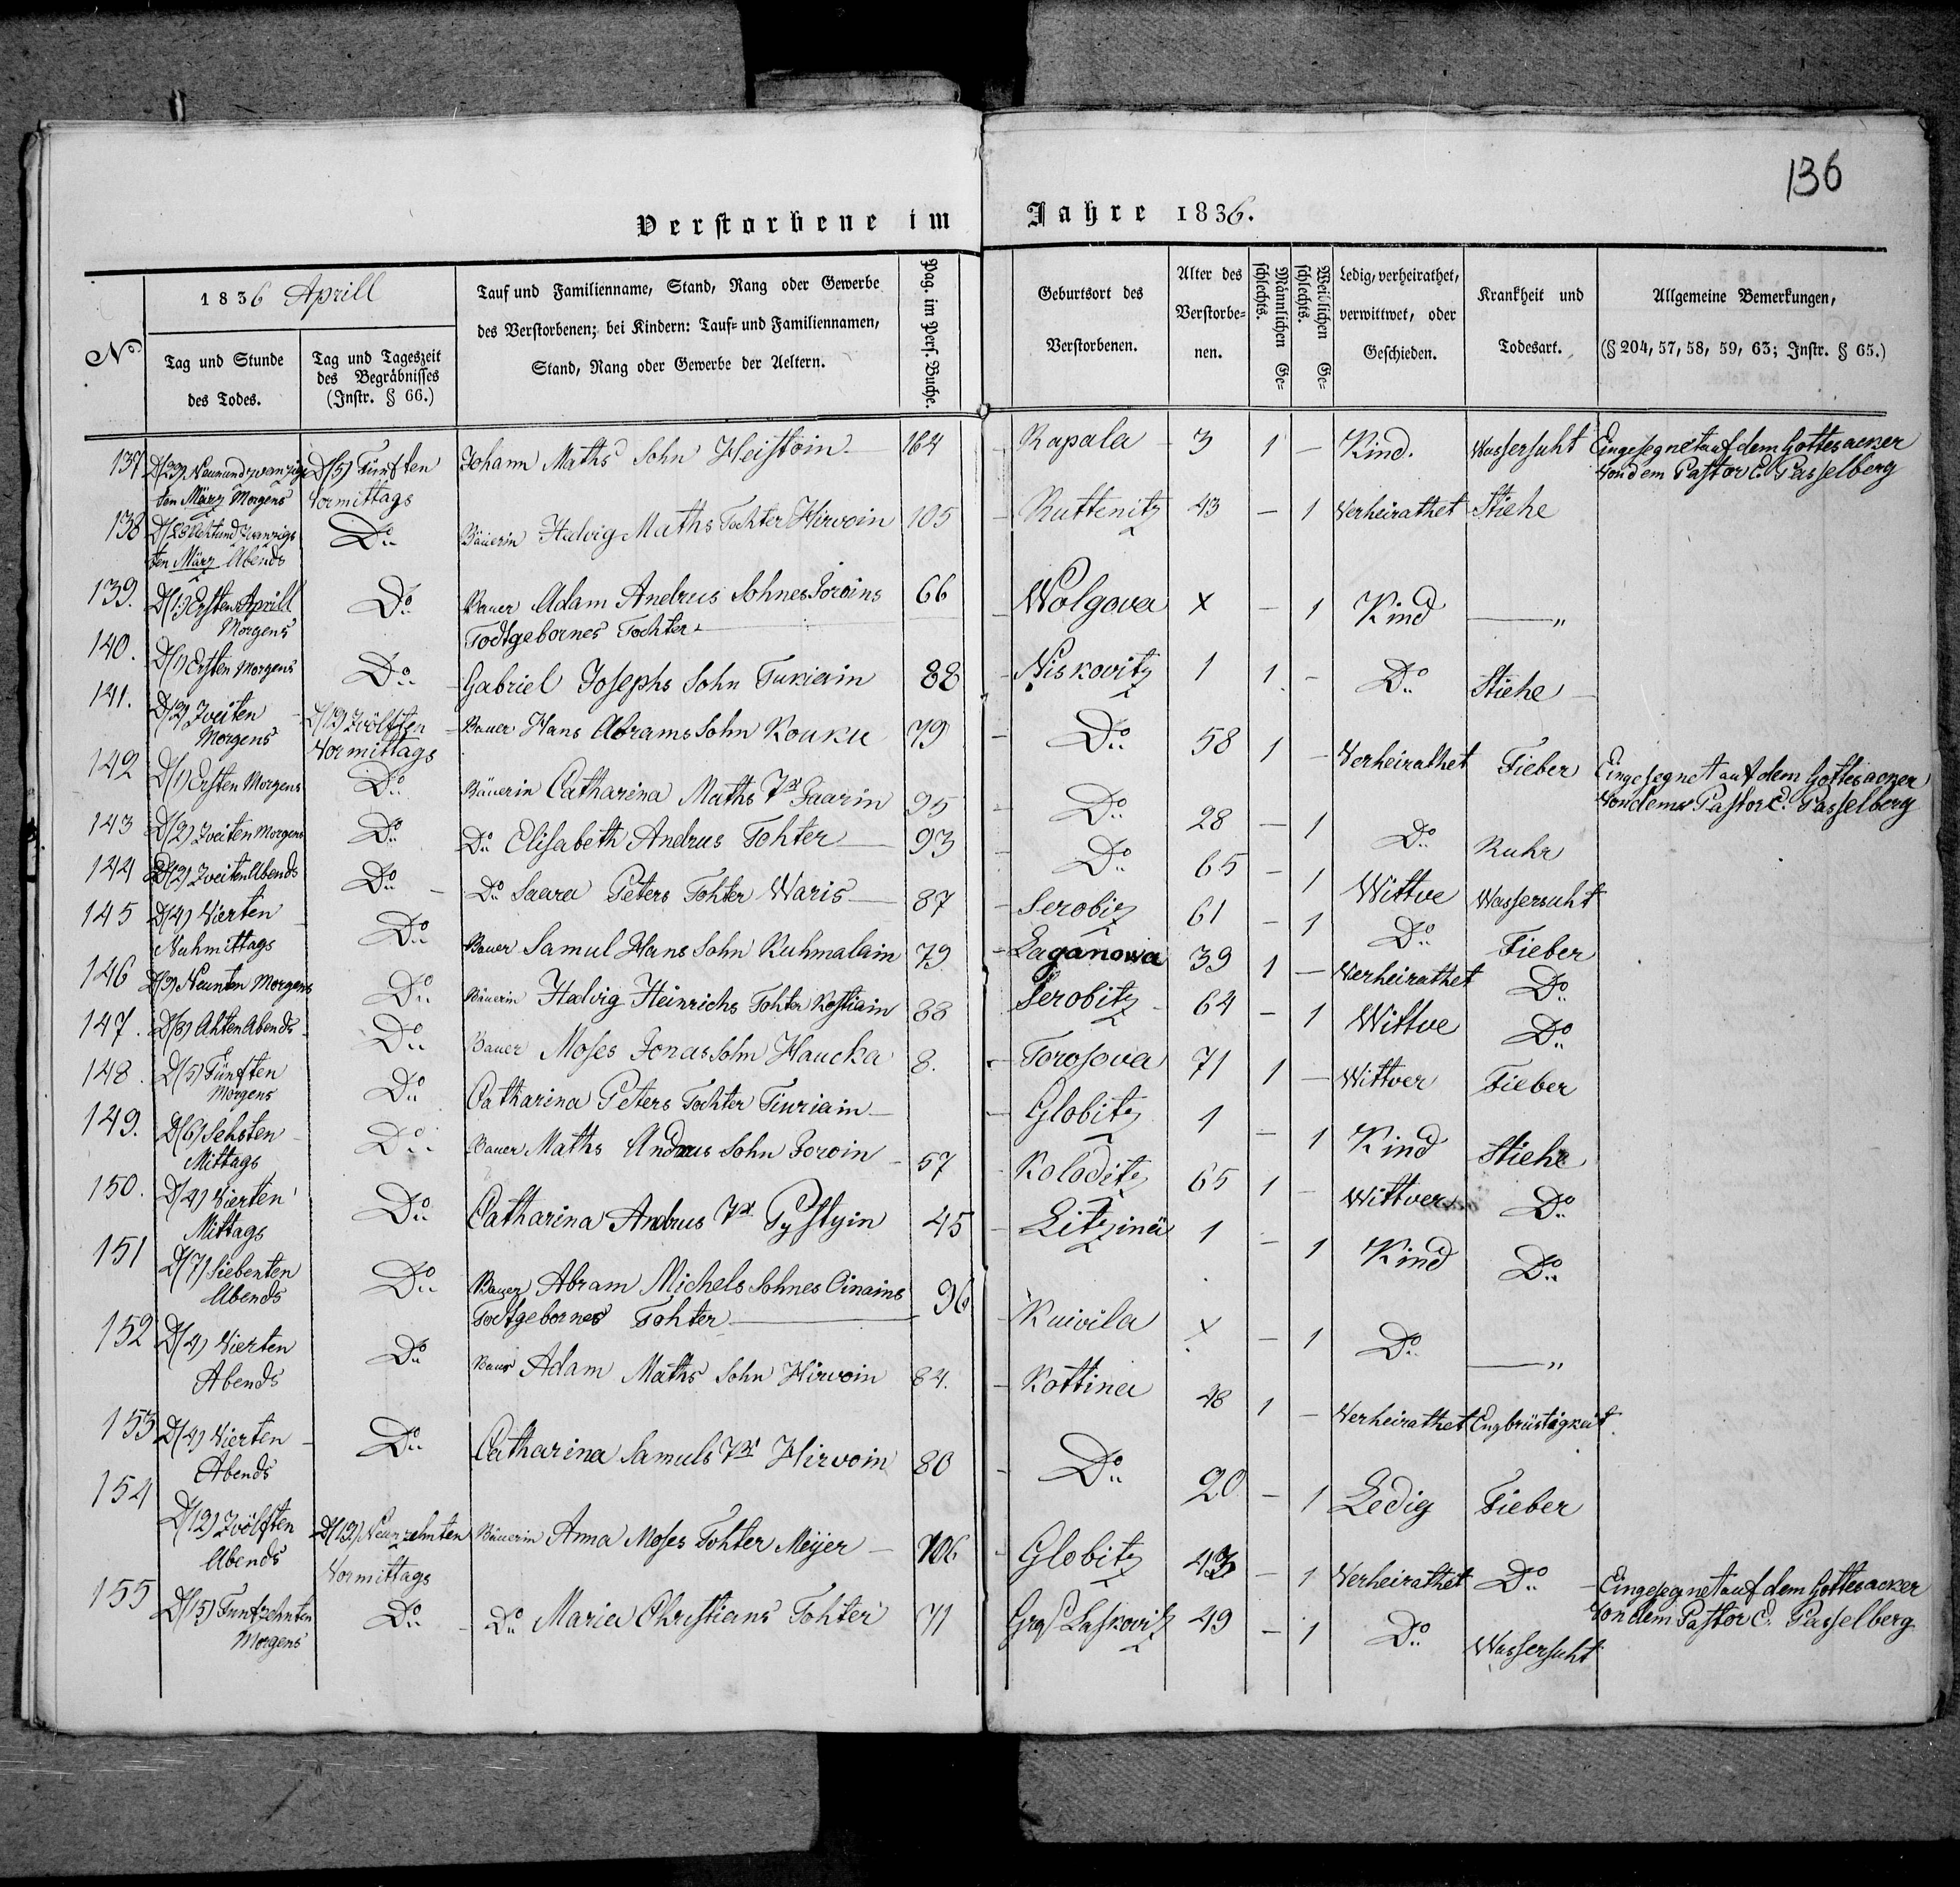 136
Verstorbene im Jahre 1836.
No
1836 Aprill
Tag und Stunde des Todes.
Tag und Tageszeit des Begräbnisses (Instr. § 66.)
Tauf und Familienname, Stand, Rang oder Gewerbe des Verstorbenen; bei Kindern: Tauf- und Familiennamen, Stand, Rang oder Gewerbe der Aeltern.
Pag. im Pers. Buche.
Geburtsort des Verstorbenen.
Alter des Verstorbe-nen.
Männlichen Ge-schlechts.
Weiblichen Ge-schlechts.
Ledig, verheirathet, verwittwet, oder Geschieden.
Krankheit und Todesart.
Allgemeine Bemerkungen, (§ 204, 57, 58, 59, 63; Instr. § 65.)
137 D(29) Neunundzwanzigsten März Morgens D(5) Fünften Vormittags Johann Maths Sohn Heistoin 164 Rapala 3 1 – Kind. Wassersuht Eingesegnet auf dem Gottesacker von dem Pastor C. Passelberg
138 D(28) Achtundzwanzigsten März Abends Do Bäuerin Hedvig Maths Tochter Hirvoin 105 Ruttenitz 43 – 1 Verheirathet Stiche
139. D(1) Ersten Aprill Morgens Do Bauer Adam Andrus Sohnes Toroins Todtgebornes Tochter 66 Wolgova x – 1 Kind — "
140. D(1) Ersten Morgens Do Gabriel Josephs Sohn Tukiain 88 Niskovitz 1 1 – Do Stiehe
141. D(2) Zveiten Morgens D(12) Zvölften Vormittags Bauer Hans Abrams Sohn Kouku 79 Do 58 1 – Verheirathet Fieber Eingesegnet auf dem Gottesacker von dem Pastor C. Passelberg
142 D(1) Ersten Morgens Do Bäuerin Catharina Maths Tr Saarin 95 Do 28 – 1 Do Ruhr
143 D(2) Zveiten Morgens Do Do Elisabeth Andrus Tohter 93 Do 65 – 1 Wittve Wassersuht
144 D(2) Zveiten Abends Do Do Saara Peters Tohter Waris 87 Serobitz 61 – 1 Do Fieber
145 D(4) Vierten Nahmittags Do Bauer Samul Hans Sohn Kuhmalain 79 Laganowa 39 1 – Verheirathet Do
146 D(9) Neunten Morgens Do Bäuerin Hedvig Heinrichs Tohter Kostiain 88 Serobitz 64 – 1 Wittve Do
147. D(8) Ahten Abends Do Bauer Moses Jonas Sohn Haucka 8. Torosova 71 1 – Wittver Fieber
148. D(5) Fünften Morgens Do Catharina Peters Tochter Tiuriain Globitz 1 – 1 Kind Stiehe
149. D(6) Sehsten Mittags Do Bauer Maths Andrus Sohn Toroin 57 Koloditz 65 1 – Wittver Do
150. D(4) Vierten Mittags Do Catharina Andrus Tr Pystyin 45 Litzinä 1 – 1 Kind Do
151 D(7) Siebenten Abends Do Bauer Abram Michels Sohnes Oinains Todtgebornes Tohter 96 Kuivila x – 1 Do — "
152 D(4) Vierten Abends Do Bauer Adam Maths Sohn Hirvoin 84. Kottina 48 1 – Verheirathet Engbrüstigkeit
153 D(4) Vierten Abends Do Catharina Samuls Tr Hirvoin 80 Do 20 – 1 Ledig Fieber
154 D(12) Zvölften Abends D(19) Neunzehnten Vormittags Bäuerin Anna Moses Tohter Meijer 106 Globitz 43 – 1 Verheirathet Do Eingesegnet auf dem Gottesacker von dem Pastor C. Passelberg
155 D(15) Funfzehnten Morgens Do Do Maria Christians Tohter 71 Gros Laskovitz 49 – 1 Do Wassersuht